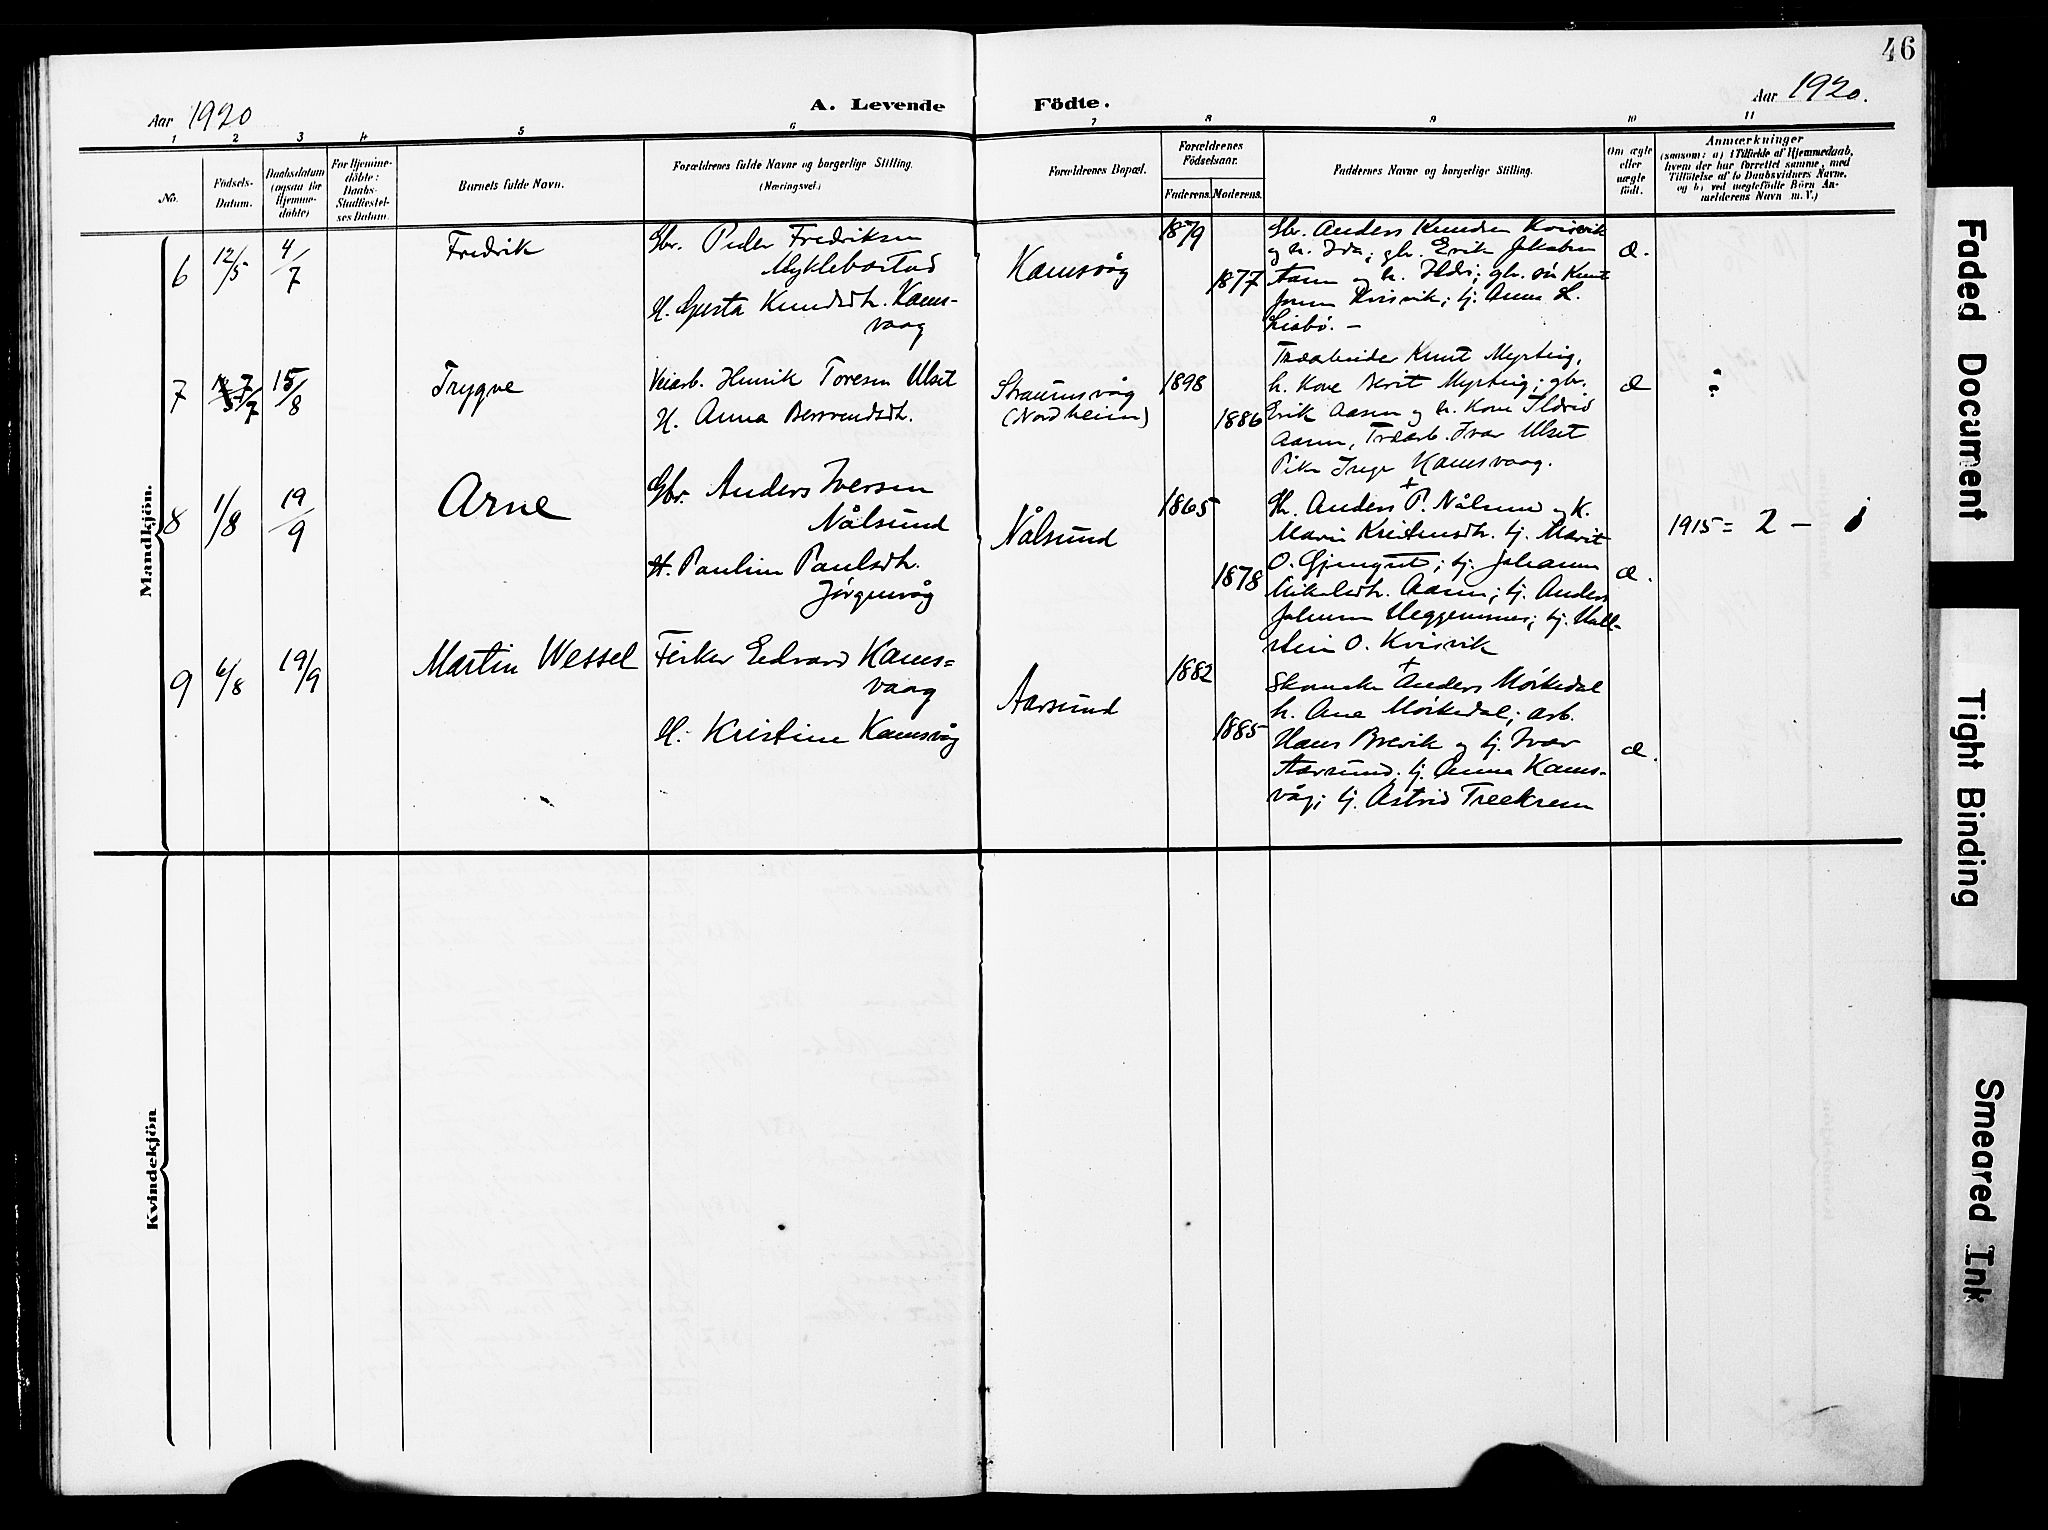 46
Aar 1920
A. Levende Födte.
Aar 1920.
1 2 3 4 5 6 7 8 9 10 11
No.
Födsels-
Datum.
Daabsdatum
(ogsaa for
Hjemme-
döbte)
For Hjemme-
döbte:
Daabs-
Stadfæstel-
ses Datum.
Barnets fulde Navn.
Forældrenes fulde Navne og borgerlige Stilling.
(Næringsvei.)
Forældrenes Bopæl.
Forældrenes
Födselsaar.
Faderens. Moderens.
Faddernes Navne og borgerlige Stilling.
Om ægte
eller
uægte
født.
Anmærkninger
(saasom: a) i Tilfælde af Hjemmedaab,
hvem der har forrettet samme, med
Tilföielse af to Daabsvidners Navne,
og b) ved uægtefödte Börn An-
melderens Navn m. V.)
Mandkjön.
6
12/5
4/7
Fredrik
Gbr. Peder Fredriksen
Myklebostad
H. Gusta Knudsdtr. Kams-
vaag
Kamsvåg
1879
1877
Gbr. Anders Knudsen Kvisvik
og h. Ida; gbr. Erik Jakobsen
Aasen og h. Ildri; gbr. søn Knut
Kvisvik; tj. Anna L.
æ.
7
7/7
15/8
Trygve
Veiarb. Henrik Toresen Ulset
H. Anna Bersvendsdtr.
Straumsvåg
(Nordheim)
1898
1886
Knut Myrbng,
h. Kone Berit Myrbng; gbr.
Erik Aasen og h. Kone Ildrid
Aasen, Træarb. Ivar Ulset
Pike Inge Kamsvaag.
æ
8
1/8
19/9
Arne
Gbr. Anders Iversen
Nålsund
H. Pauline Paulsdtr.
Jörgenvåg
Nålsund
1865
1878
Anders P. Nålsund og K.
Marie Kristensdtr. tj. Marit
O. Gjengset; tj. Johanne
Mikalsdtr. Aasen; tj. Anders
Johnsen Heggemsnes; tj. Hall-
stein O. Kvisvik
æ.
1915 = 2 -
9
6/8
19/9
Martin Wessel
Fisker Edvard Kams=
vaag
H. Kristine Kamsvåg
Aarsund
1882
1885
Skomaker Anders Mörkedal
h. Ane Mörkedal; arb.
Hans Brevik og tj. Ivar
Aarsund. tj. Anna Kams-
våg; tj. Astrid Treekrem
æ.
Kvindekjön
Faded Document
Tight Binding
Smeared Ink